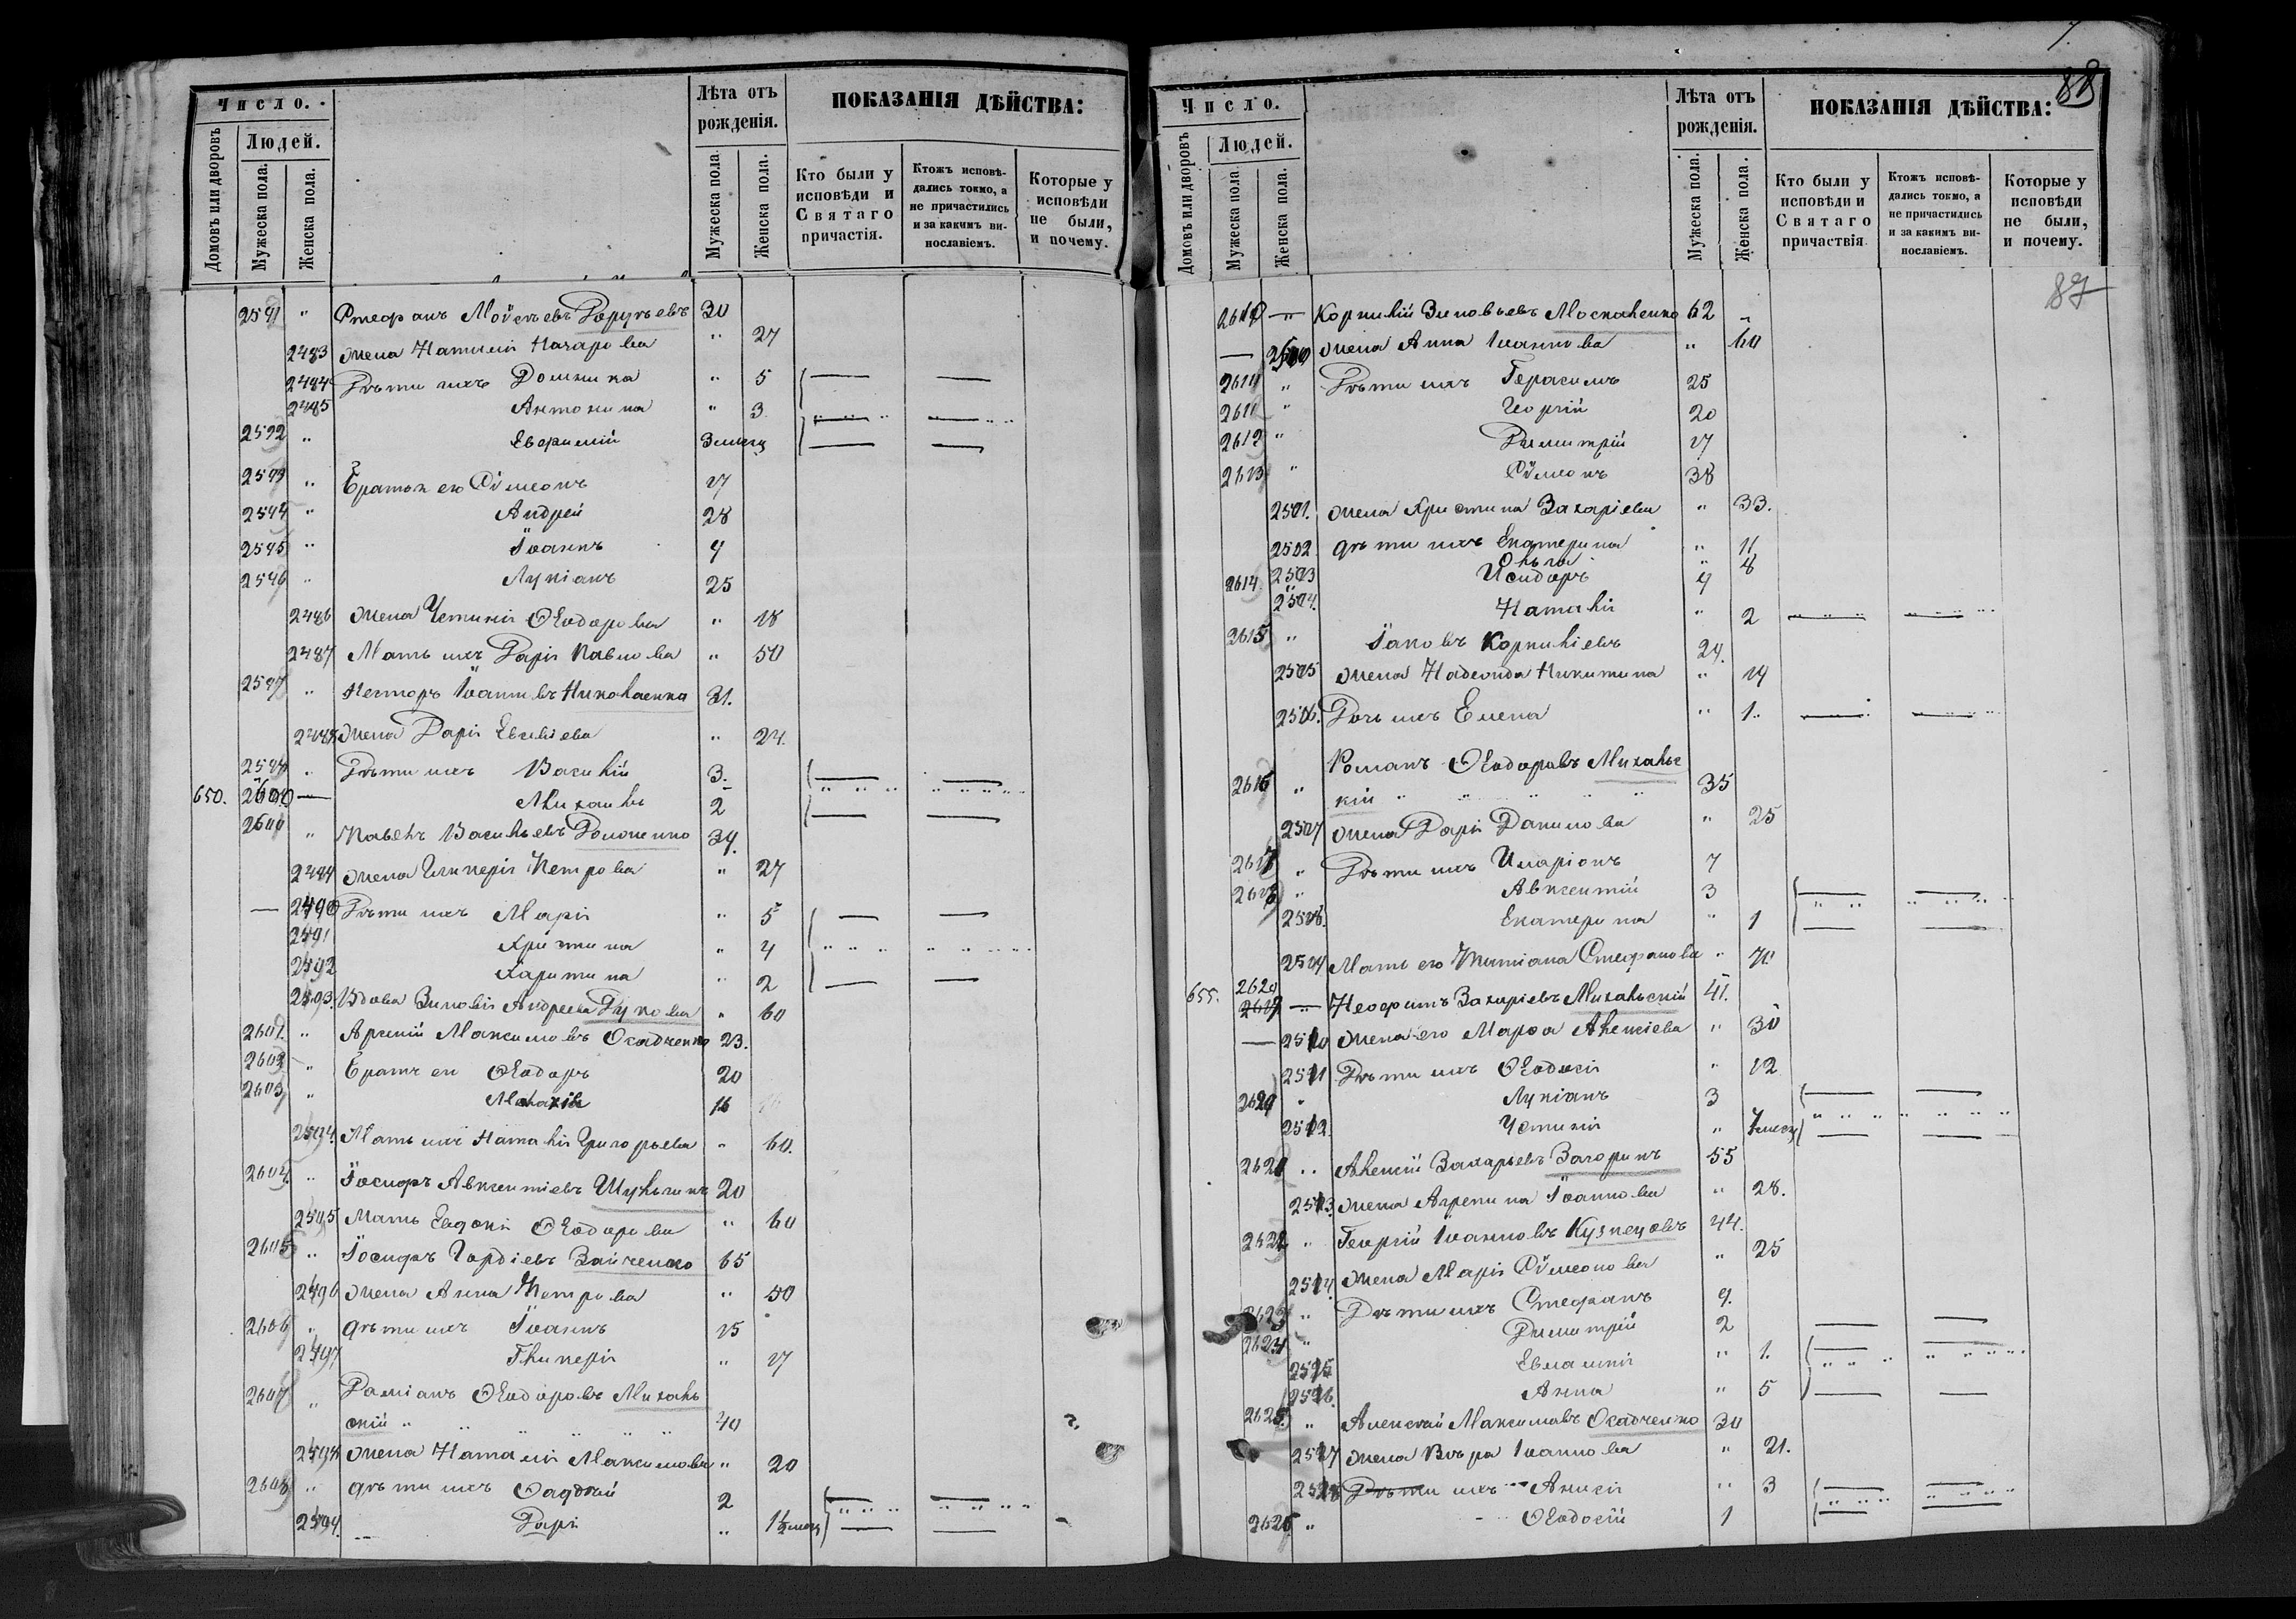 Число.
Домовъ или дворовъ
Людей.
Мужеска пола.
Женска пола.
Лѣта отъ рожденія.
Мужеска пола
Женска пола.
ПОКАЗАНІЯ ДѢЙСТВА:
Кто были у исповѣди и Святаго причастія.
Ктожъ исповѣдались токмо, а не причастились и за какимъ винословіемъ.
Которые у исповѣди не были, и почему.
Стефанъ Моѵсѣевъ 30
2483 жена Наталія Назарова " 27
2484 Дѣти ихъ Домника " 5
2485 Антонина " 3
2592 " Евфимій 3 мѣсяц
2593 " Братья его Сѵмеонъ 17
2594 " Андрей 28
2595 " Іоаннъ 9
2596 " Лукіанъ 25
2486 жена Устинія Ѳеодорова " 18
2487 Мать ихъ Дарія Павлова " 50
2597 " Несторъ Іоанновъ Николаенко 31.
жена Дарія Евсевіева " 24.
Дѣти ихъ Василій 3.
650. Михаилъ 2
2600 " Павелъ Васильевъ 34.
2489 жена Гликерія Петрова " 27
— 2490 Дѣти ихъ Марія " 5
2491 Христина " 4
2492 Харитина " 2
2493. Вдова Зиновія Андреева " 60
2601. " Арсеній Максимовъ Осадченко 23.
2602 " Братъ его Ѳеодоръ 20
2603 " 16
2494. Мать ихъ Наталія Григорьева " 60.
2604. " Іосифъ Авксентіевъ Шульгинъ 20
2495 Мать Евдокія Ѳеодорова " 60
2605 " Іосифъ Гордіевъ Зайченко 65
2496 жена Анна Петрова " 50
2606 " дѣти ихъ Іоаннъ 15
2497 Гликерія " 17
2607 " Даміанъ Ѳеодоровъ Михаль
скій " 40
2498 жена Наталія Максимова " 20
2608 " дѣти ихъ Фаддей 2
2499. Дарія " 1½ мѣсяц
88
Число.
Домовъ или дворовъ
Людей.
Мужеска пола
Женска пола.
Лѣта отъ рожденія.
Мужеска пола.
Женска пола.
ПОКАЗАНІЯ ДѢЙСТВА:
Кто были у исповѣди и Святаго причаствія
Ктожъ исповѣдались токмо, а не причастились и за какимъ винословіемъ.
Которые у исповѣди не были, и почему.
87
Корнилій Зиновьевъ Москаленко 62
— 2500 жена Анна Іоаннова " 60
2610 " Дѣти ихъ Герасимъ 25
2611 " Георгій 20
2612 " Димитрій 17
2613 " Сѵмеонъ 38
2501. жена Христина Захаріева " 33.
2502 дѣти ихъ Екатерина " 11
2503 Ольга " 8
2614 " Исидоръ 9
2504. Наталія " 2
2615 " Іаковъ Корниліевъ 24.
2505 жена Надежда Никитина " 19
2506. Дочь ихъ Елена " 1.
Романъ Ѳеодоровъ Михальс
2616 " кій " 35
2507 жена Дарія Данилова " 25
2617 " Дѣти ихъ Иларіонъ 7
2618 " Авксентій 3
2508. Екатерина " 1
2509 Мать его Татіана Стефанова " 70
655. 2619 — Неофитъ Захаріевъ Михальскій 41.
— 2510 жена его Марѳа Алексіева " 30
2511 Дѣти ихъ Ѳеодосія " 12
2620 " Лукіанъ 3
2512 Устинія " 7 мѣсяц
2621 " Алексій Захарьевъ Загоринъ 55
2513. жена Агрепина Іоаннова " 28.
2622 " Георгій Іоанновъ Кузнецовъ 44.
2514. жена Марія Сѵмеонова " 25
2623 " Дѣти ихъ Стефанъ 9.
2624 " Димитрій 2
2515 Евлампія " 1.
2516. Анна " 5
2625. " Алексій Максимовъ Осадченко 30
2517 жена Вѣра Іоаннова " 21.
2518 Дѣти ихъ Анисія " 3
2626 " Ѳеодосій 1